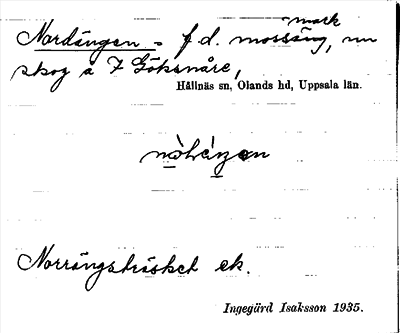 mark
Nordängen = f.d. mossäng, nu
skog å 7 Göksnåre,
Hållnäs sn, Olands hd, Uppsala län.
Norrängsträsket ek.
Ingegärd Isaksson 1935.